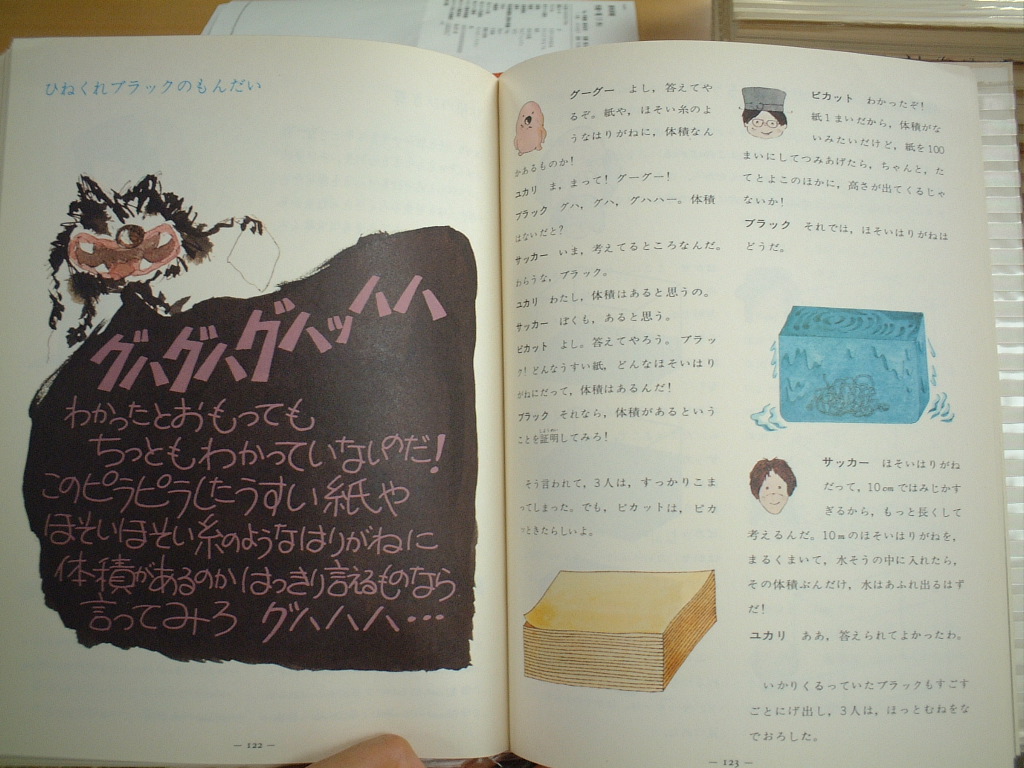 ひねくれブラックのもんだい
グハグハグハッハハ
わかったとおもっても
ちっともわかっていないのだ!
このピラピラしたうすい紙や
ほそいほそい糸のようなはりがねに
体積があるのか はっきり言えるものなら
言ってみろ グハハハ…
— 122 —
グーグー よし,答えてや
るぞ。紙や,ほそい糸のよ
うなはりがねに,体積なん
かあるものか!
ユカリ ま,まって!グーグー!
ブラック グハ,グハ,グハハー。体積
はないだと?
サッカー いま,考えてるところなんだ。
わらうな,ブラック。
ユカリ わたし,体積はあると思うの。
サッカー ぼくも,あると思う。
ピカット よし。答えてやろう。ブラッ
ク!どんなうすい紙,どんなほそいはり
がねにだって,体積はあるんだ!
ブラック それなら,体積があるという
しょうめい
ことを証明してみろ!
そう言われて,3人は,すっかりこま
ってしまった。でも,ピカットは,ピカ
ッときたらしいよ。
ピカット わかったぞ!
紙1まいだから,体積がな
いみたいだけど,紙を100
まいにしてつみあげたら,ちゃんと,た
てとよこのほかに,高さが出てくるじゃ
ないか!
ブラック それでは,ほそいはりがねは
どうだ。
サッカー ほそいはりがね
だって,10cmではみじかす
ぎるから,もっと長くして
考えるんだ。10mのほそいはりがねを,
まるくまいて,水そうの中に入れたら,
その体積ぶんだけ,水はあふれ出るはず
だ!
ユカリ ああ,答えられてよかったわ。
いかりくるっていたブラックもすごす
ごとにげ出し,3人は,ほっとむねをな
でおろした。
— 123 —